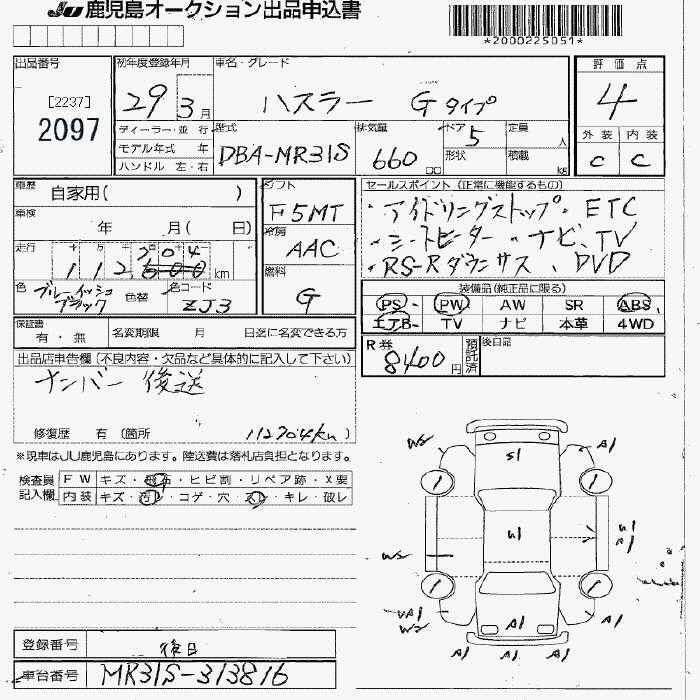 JU 鹿児島オークション出品申込書
*2000225051*
出品番号
[2237]
2097
初年度登録年月
29 3月
車名・グレード
ハスラー Gタイプ
評価点
4
外装 内装
C C
ディーラー・並行
モデル年式 年
ハンドル 左・右
型式
DBA-MR31S
排気量
660
cc
ドア 5
形状
定員
人
積載
kg
車歴
自家用( )
車検
年 月( 日)
走行
十 万 千 百 十 一
304
112,500 km
色
ブルーイッシュ
ブラック
色替
色コード
ZJ3
シフト
F5MT
冷房
AAC
燃料
G
セールスポイント(正常に機能するもの)
・アイドリングストップ・ETC
・シートヒーター・ナビ、TV
・RS-Rダウンサス、DVD
装備品(純正品に限る)
PS PW AW SR ABS
エアB TV ナビ 本革 4WD
保証書
有・無
名変期限 月 日迄に名変できる方
R券
8400円
預託済
後日品
出品店申告欄(不良内容・欠品など具体的に記入して下さい)
ナンバー後送
修復歴 有(箇所 112304km)
※現車はJU鹿児島にあります。陸送費は落札店負担となります。
検査員
記入欄
FW キズ・飛石・ヒビ割・リペア跡・X要
内装 キズ・汚れ・コゲ・穴・スレ・キレ・破レ
W2 A1
S1
U1
U1
A1
W2
UA1
W2
A1
A1
A1 A1 A1
登録番号
後日
車台番号
MR31S-313816